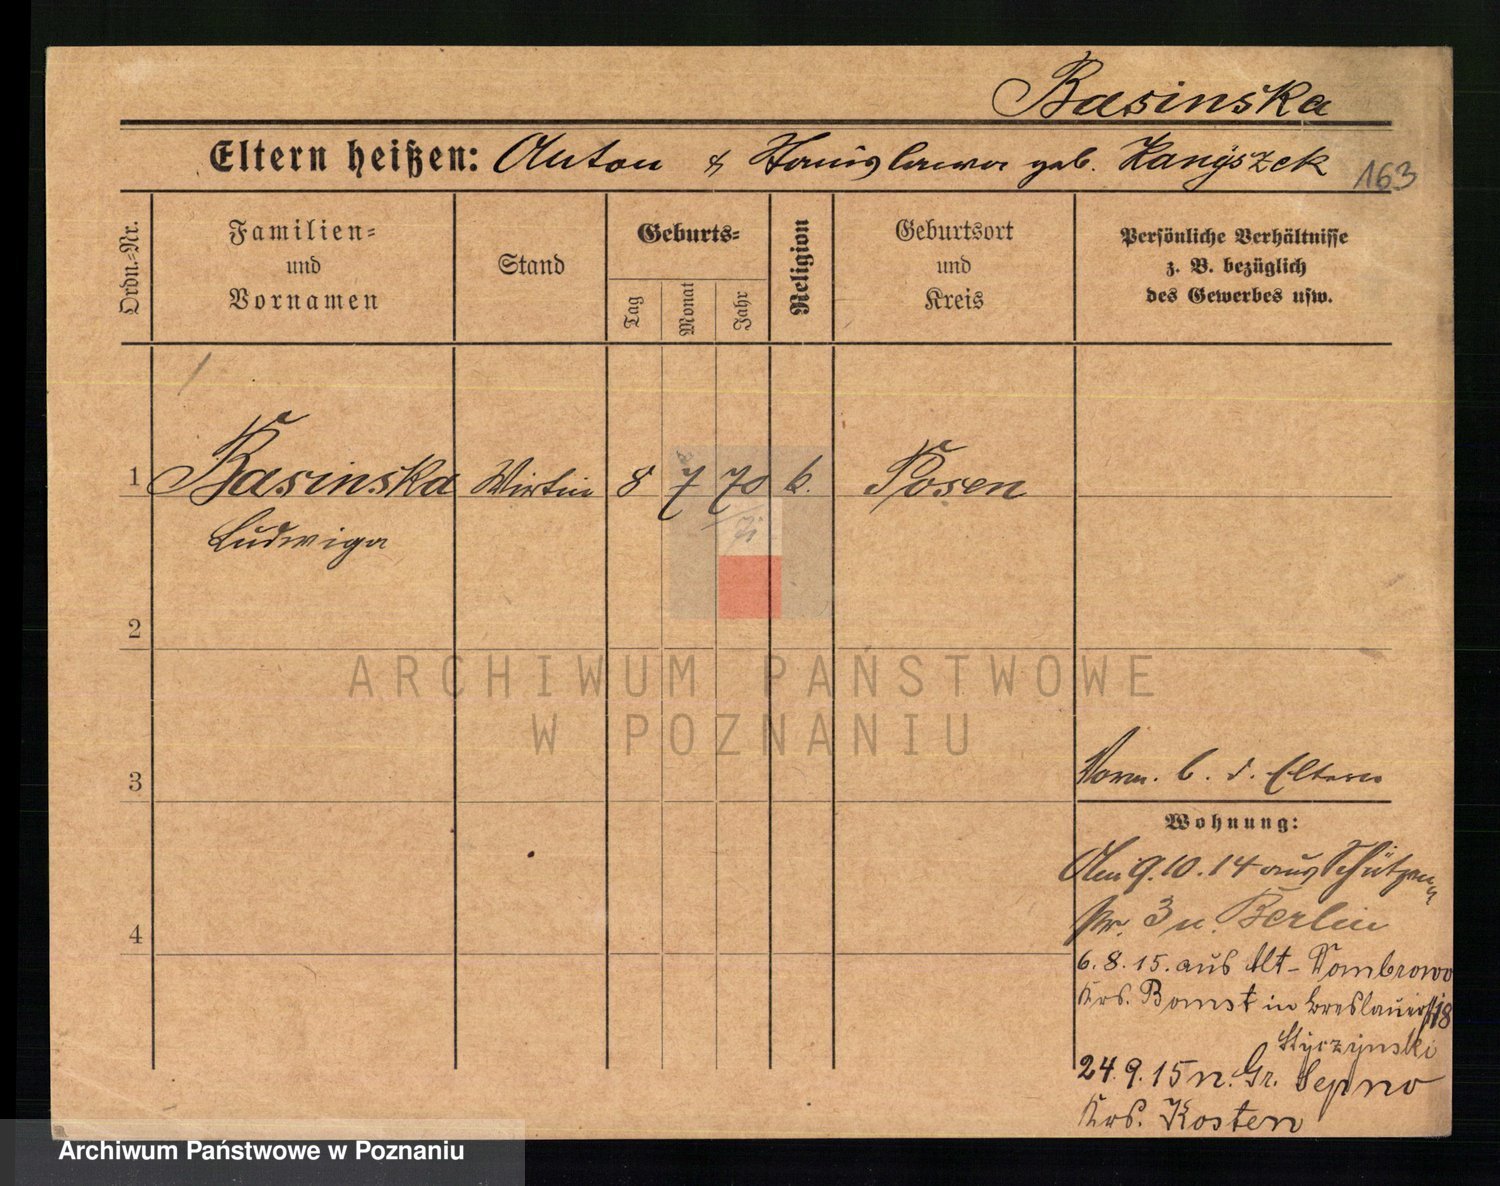 Basinska
Eltern heißen: Anton & Stanislawa geb. Kanyszek
163
Ordn.-Nr.
Familien-
und
Vornamen
Stand
Geburts-
Tag
Monat
Jahr
Religion
Geburtsort
und
Kreis
Persönliche Verhältnisse
z. B. bezüglich
des Gewerbes usw.
1 Basinska Wirtin 8 7 70 k. Posen
Ludwiga
2
ARCHIWUM PAŃSTWOWE
W POZNANIU
3
Vorm. b. d. Eltern
Wohnung:
Am 9.10.14 aus Schützen-
str. 3 n. Berlin
4
6.8.15. aus Alt-Dombrowo
Krs. Bomst in Breslauerstr 18
Styczynski
24.9.15 n. Gr. Sepno
Krs. Kosten
Archiwum Państwowe w Poznaniu